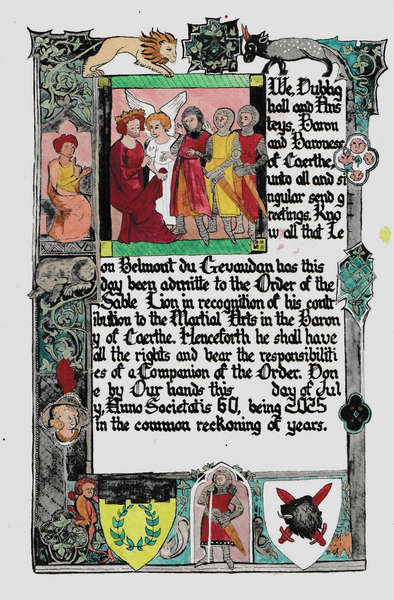 We, Dubhg
hall and Ans
teys, Baron
and Baroness
of Caerthe,
unto all and si
ngular send g
reetings. Kno
w all that Le
on Belmont du Gevaudan has this
day been admitte to the Order of the
Sable Lion in recognition of his contr
ibution to the Martial Arts in the Baron
y of Caerthe. Henceforth he shall have
all the rights and bear the responsibiliti
es of a Companion of the Order. Don
e by Our hands this day of Jul
y, Anno Societatis 60, being 2025
in the common reckoning of years.